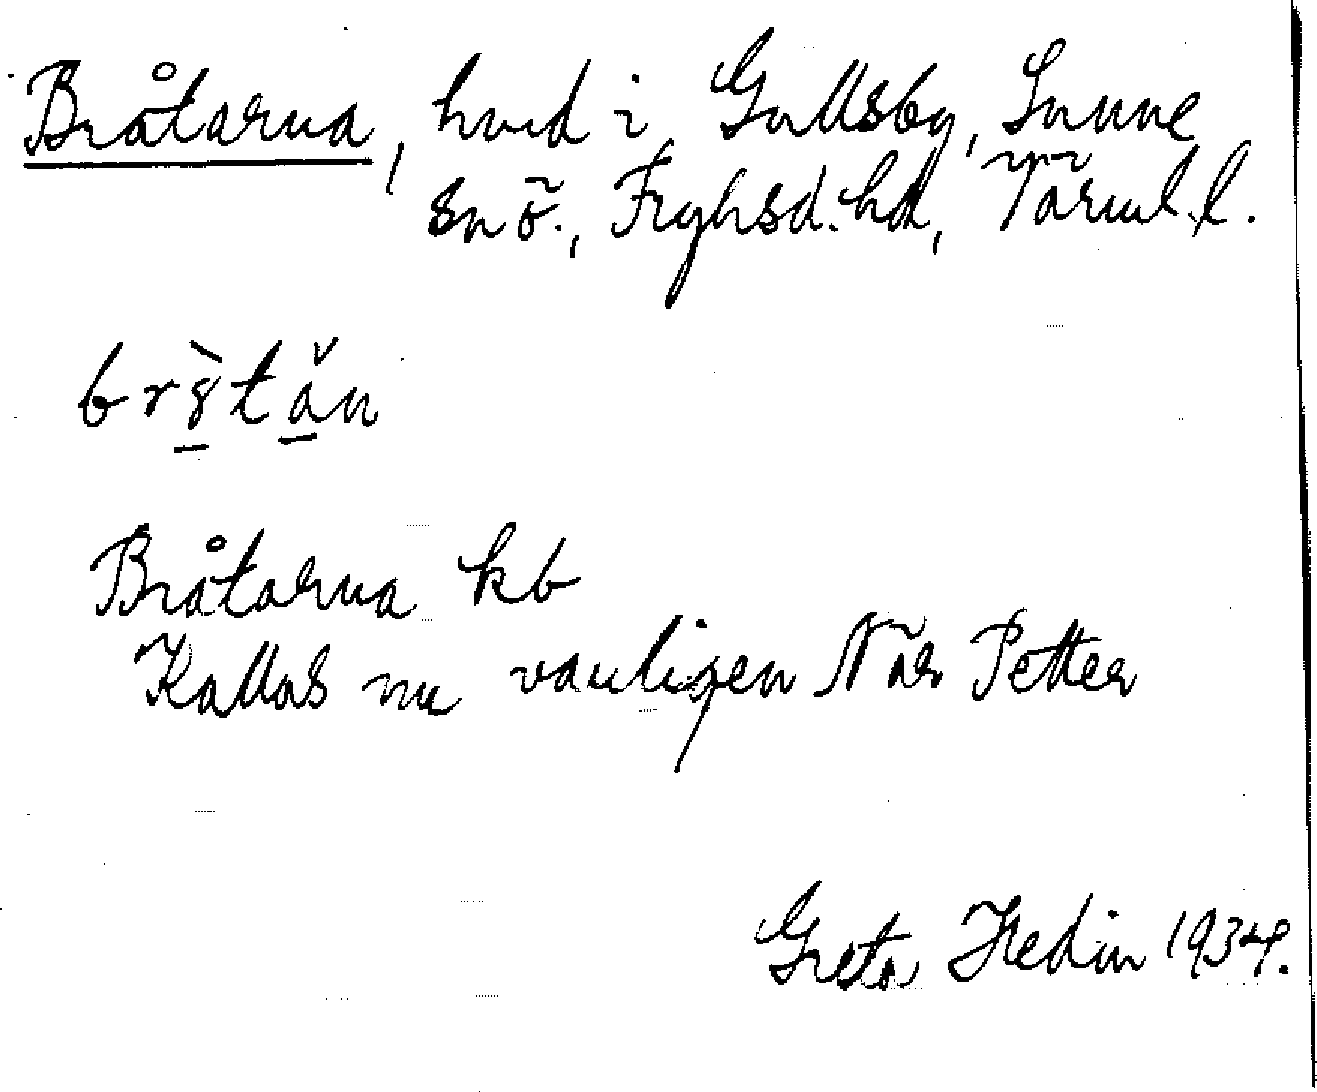 Bråtarna, hmd i Gullsby, Sunne
sn ö., Fryksd. hd, Värml. l.
br8̀tǎ̲n
Bråtarna kb
Kallas nu vanligen När Petter
Greta Hedin 1934.